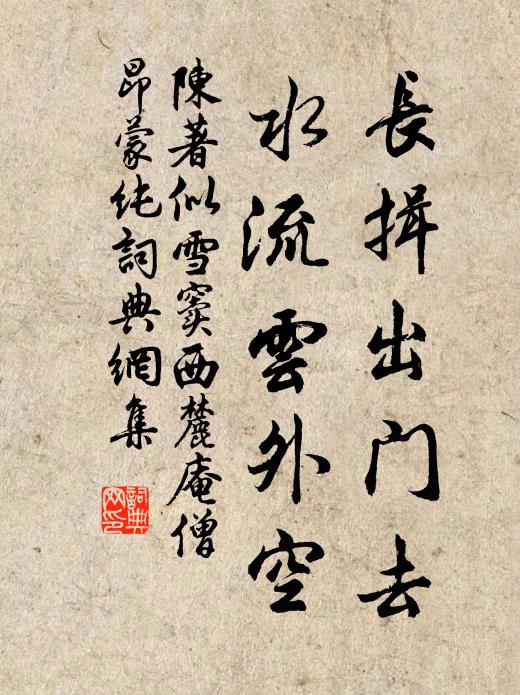 長揖出門去
水流雲外空
陳著似雪竇西麓庵僧
昂蒙純詞典網集
詞典
网印